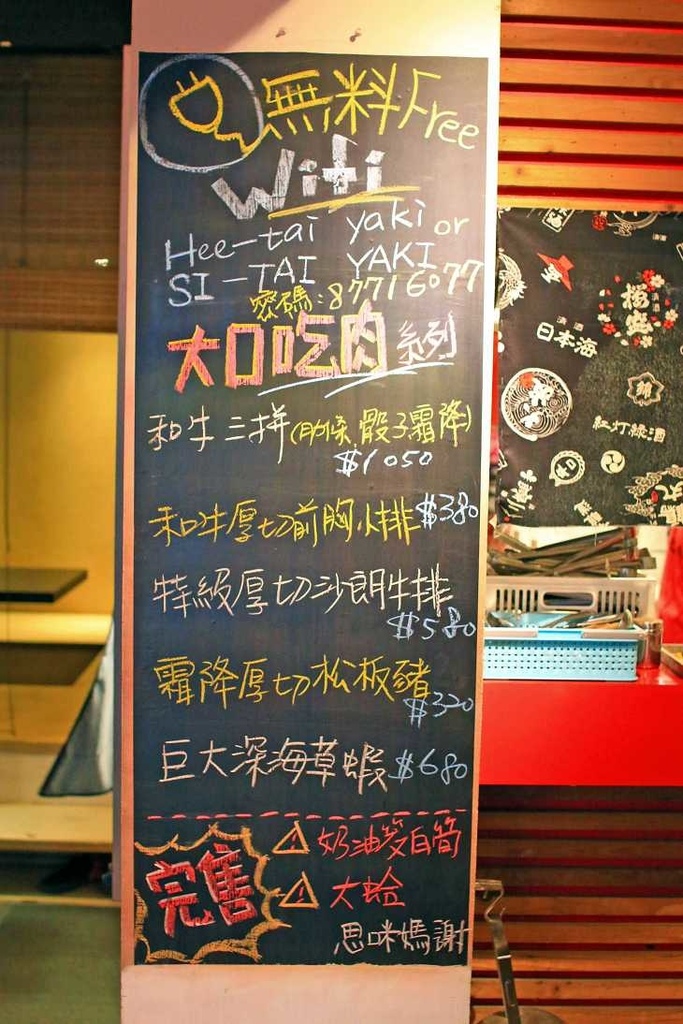 無料 Free
Wifi
Hee-tai yaki or
SI-TAI YAKI
密碼:87716077
大口吃肉系列
和牛三拼(肋條.骰子.霜降)
$1050
和牛厚切前胸小排$380
特級厚切沙朗牛排
$580
霜降厚切松板豬
$320
巨大深海草蝦$680
完售
奶油筊白筍
大蛤
思咪媽謝
日本海
紅灯緑酒